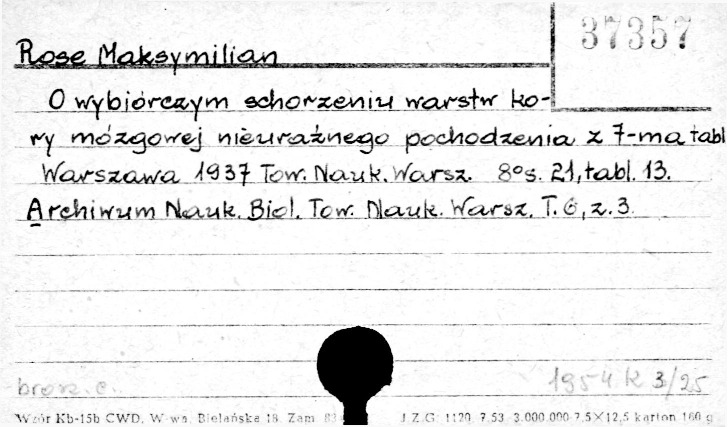 37357
Rose Maksymilian
O wybiórczym schorzeniu warstw ko-
ry mózgowej nieuraźnego pochodzenia z 7-ma tabl
Warszawa 1937 Tow. Nauk. Warsz. 8° s. 21, tabl. 13.
Archiwum Nauk. Biol. Tow. Nauk. Warsz. T. 6, z. 3.
brosz. c. 1954 K 3/25
Wzór Kb-15b CWD, W-wa, Bielańska 18. Zam. J.Z.G. 1120 7.53 3.000.000 7,5×12,5 karton 160 g